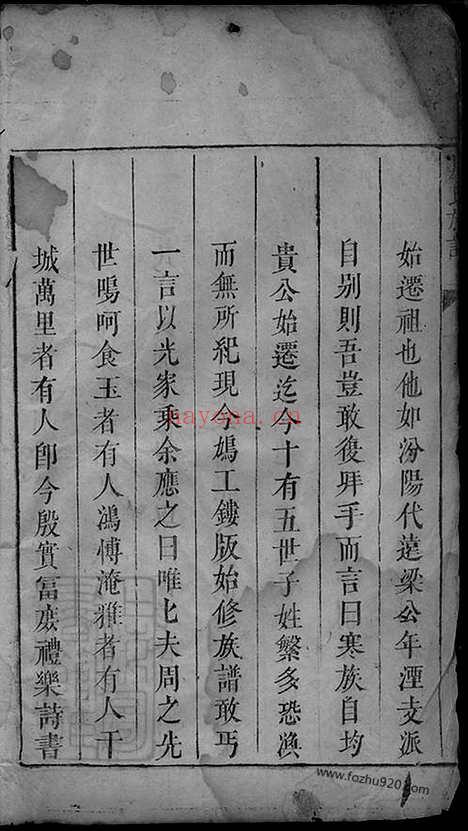 始遷祖也他如汾陽代遠梁公年湮支派
自别則吾豈敢後拜手而言曰寒族自均
貴公始遷迄今十有五世子姓繁多恐渙
而無所紀現今鳩工鏤版始修族譜敢丐
一言以光家乘余應之曰唯匕夫周之先
世鳴呵食玉者有人鴻博淹雅者有人干
城萬里者有人卽今殷實富庶禮樂詩書
nayona.cn
www.fozhu920.com